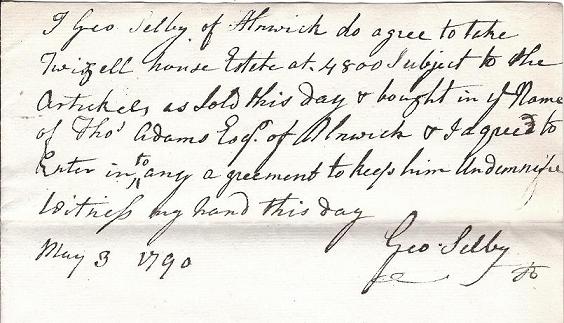 I Geo Selby of Alnwick do agree to take
Twizell house Estate at 4800 Subject to the
Artickels as Sold this day & bought in ye Name
of Thos Adams Esqr. of Alnwick & I agree to
Enter into any agreement to keep him Undemnifie
Witness my hand this day
May 3 1790 Geo. Selby